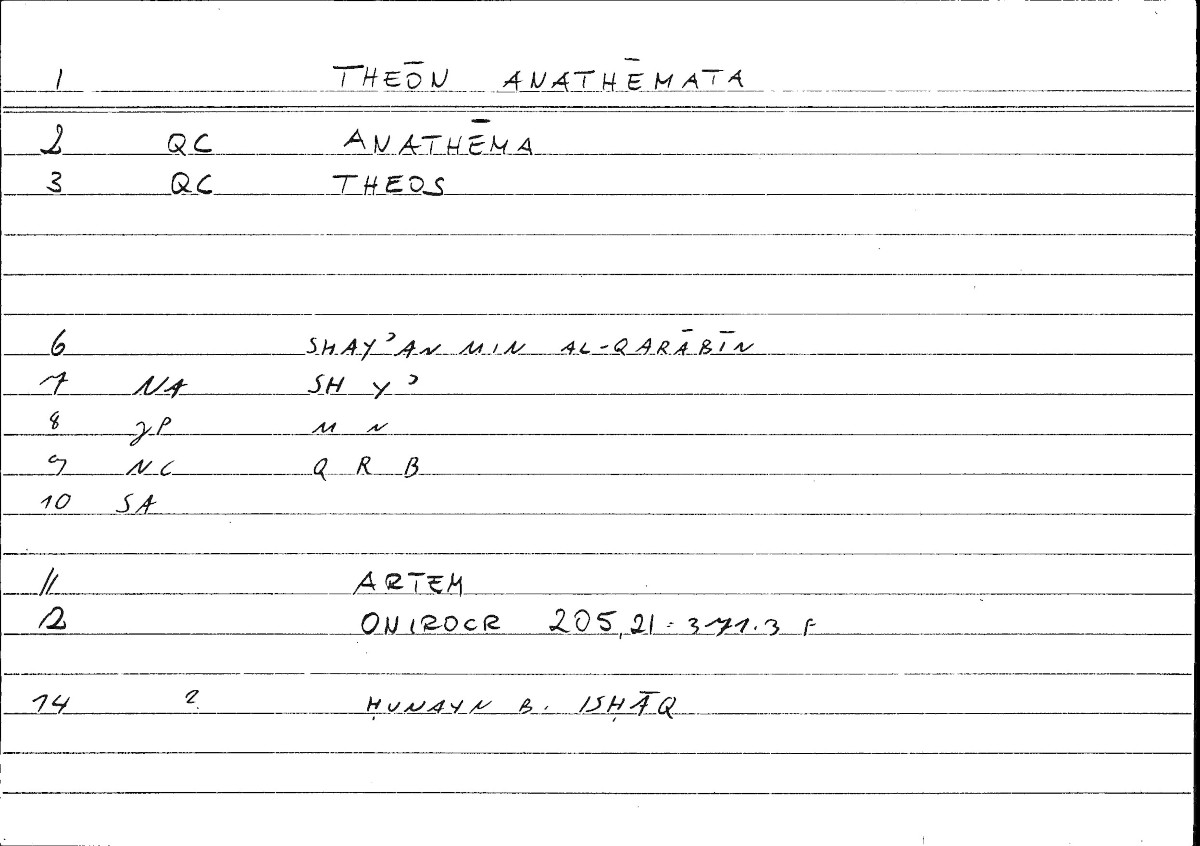 1 THEŌN ANATHĒMATA
2 QC ANATHĒMA
3 QC THEOS
6 SHAYʾAN MIN AL-QARĀBĪN
7 NA SH Y ʾ
8 γP M N
9 NC Q R B
10 SA
11 ARTEM
12 ONIROCR 205,21 = 371.3 F
14 2 ḤUNAYN B. ISḤĀQ